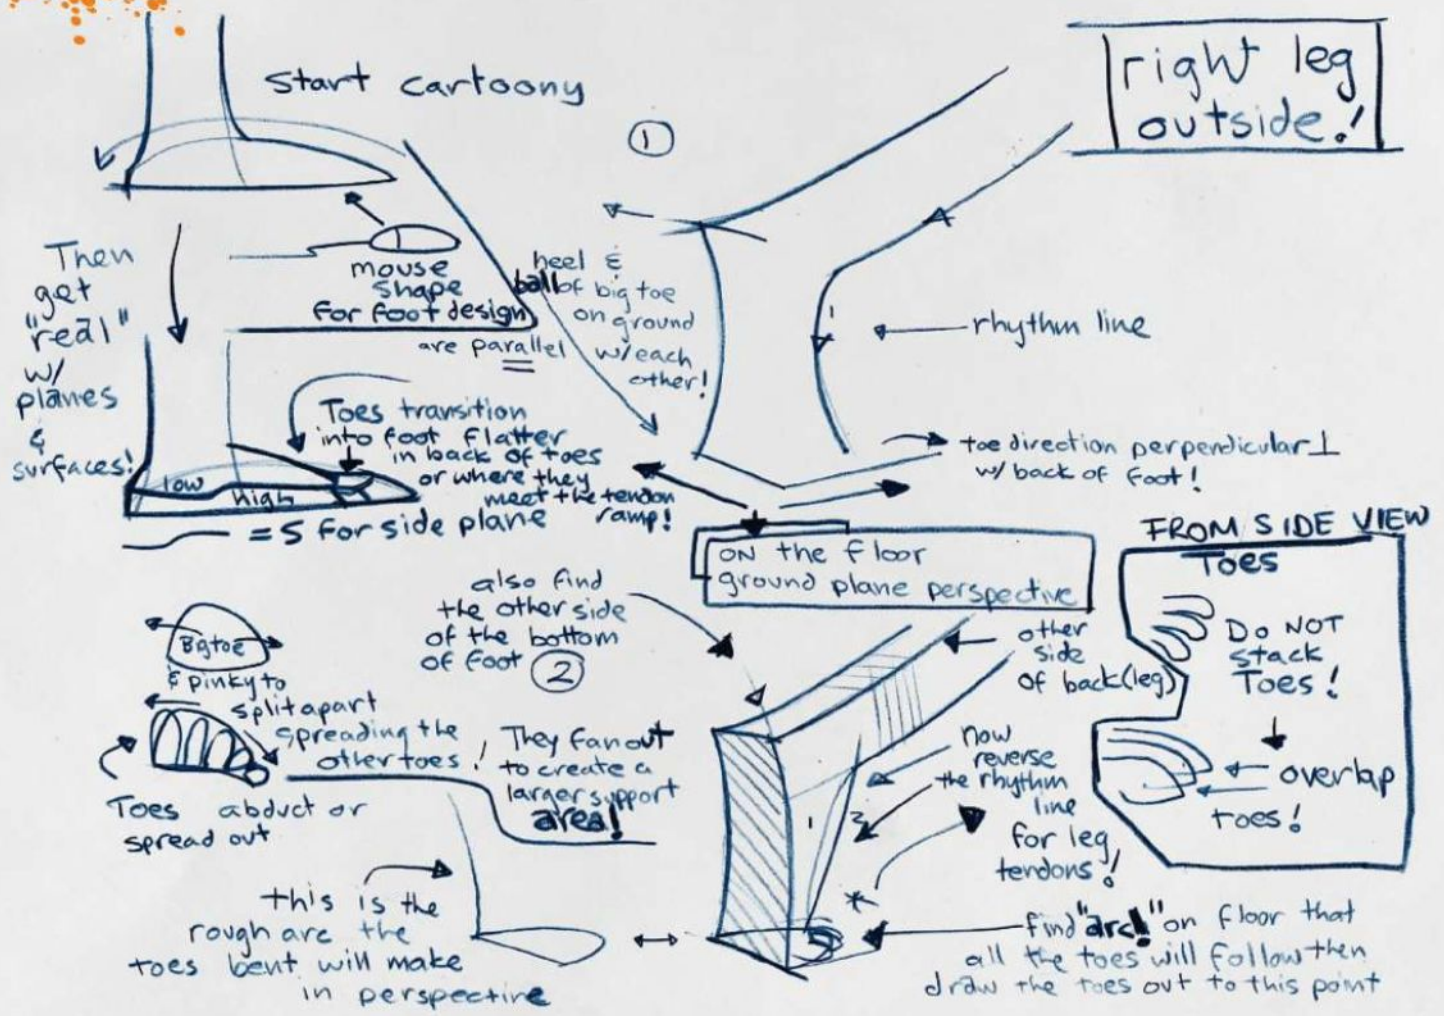 Start cartoony
①
right leg
outside!
Then
get
"real"
w/
planes
&
surfaces!
mouse
shape
for foot design
are parallel
heel &
ball of big toe
on ground
w/each
other!
rhythm line
Toes transition
into foot flatter
in back of toes
or where they
meet the tendon
ramp!
low
high
= S for side plane
toe direction perpendicular ⊥
w/ back of foot!
ON the floor
ground plane perspective
FROM SIDE VIEW
Toes
Do NOT
stack
Toes!
overlap
toes!
also find
the other side
of the bottom
of foot ②
other
side
of back(leg)
Big toe
& pinky to
split apart
spreading the
other toes!
Toes abduct or
spread out
They fan out
to create a
larger support
area!
now
reverse
the rhythm
line
for leg
tendons!
this is the
rough arc the
toes bent will make
in perspective
find "arc!" on floor that
all the toes will follow then
draw the toes out to this point